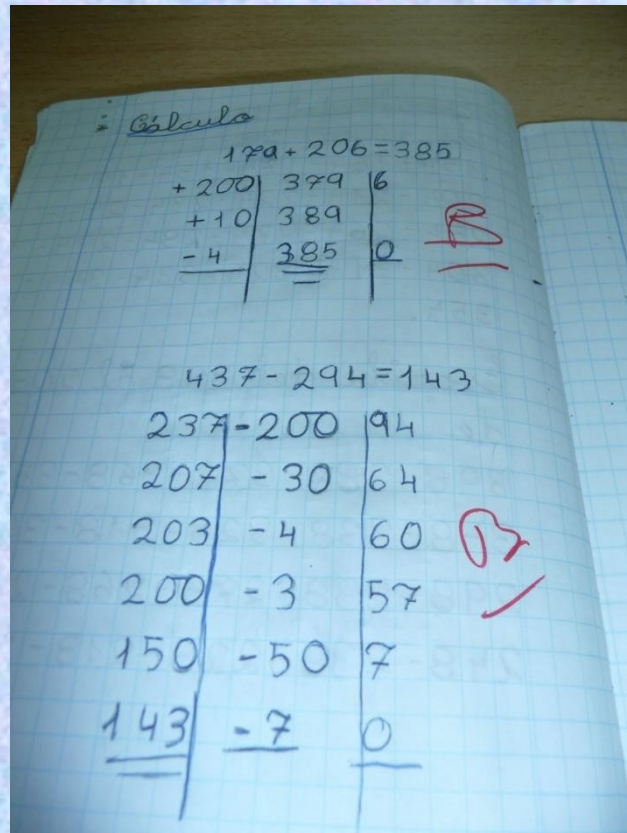 Cálculo
179 + 206 = 385
+ 200 379 6
+ 10 389
- 4 385 0
B
437 - 294 = 143
237 - 200 94
207 - 30 64
203 - 4 60
B
200 - 3 57
150 - 50 7
143 - 7 0